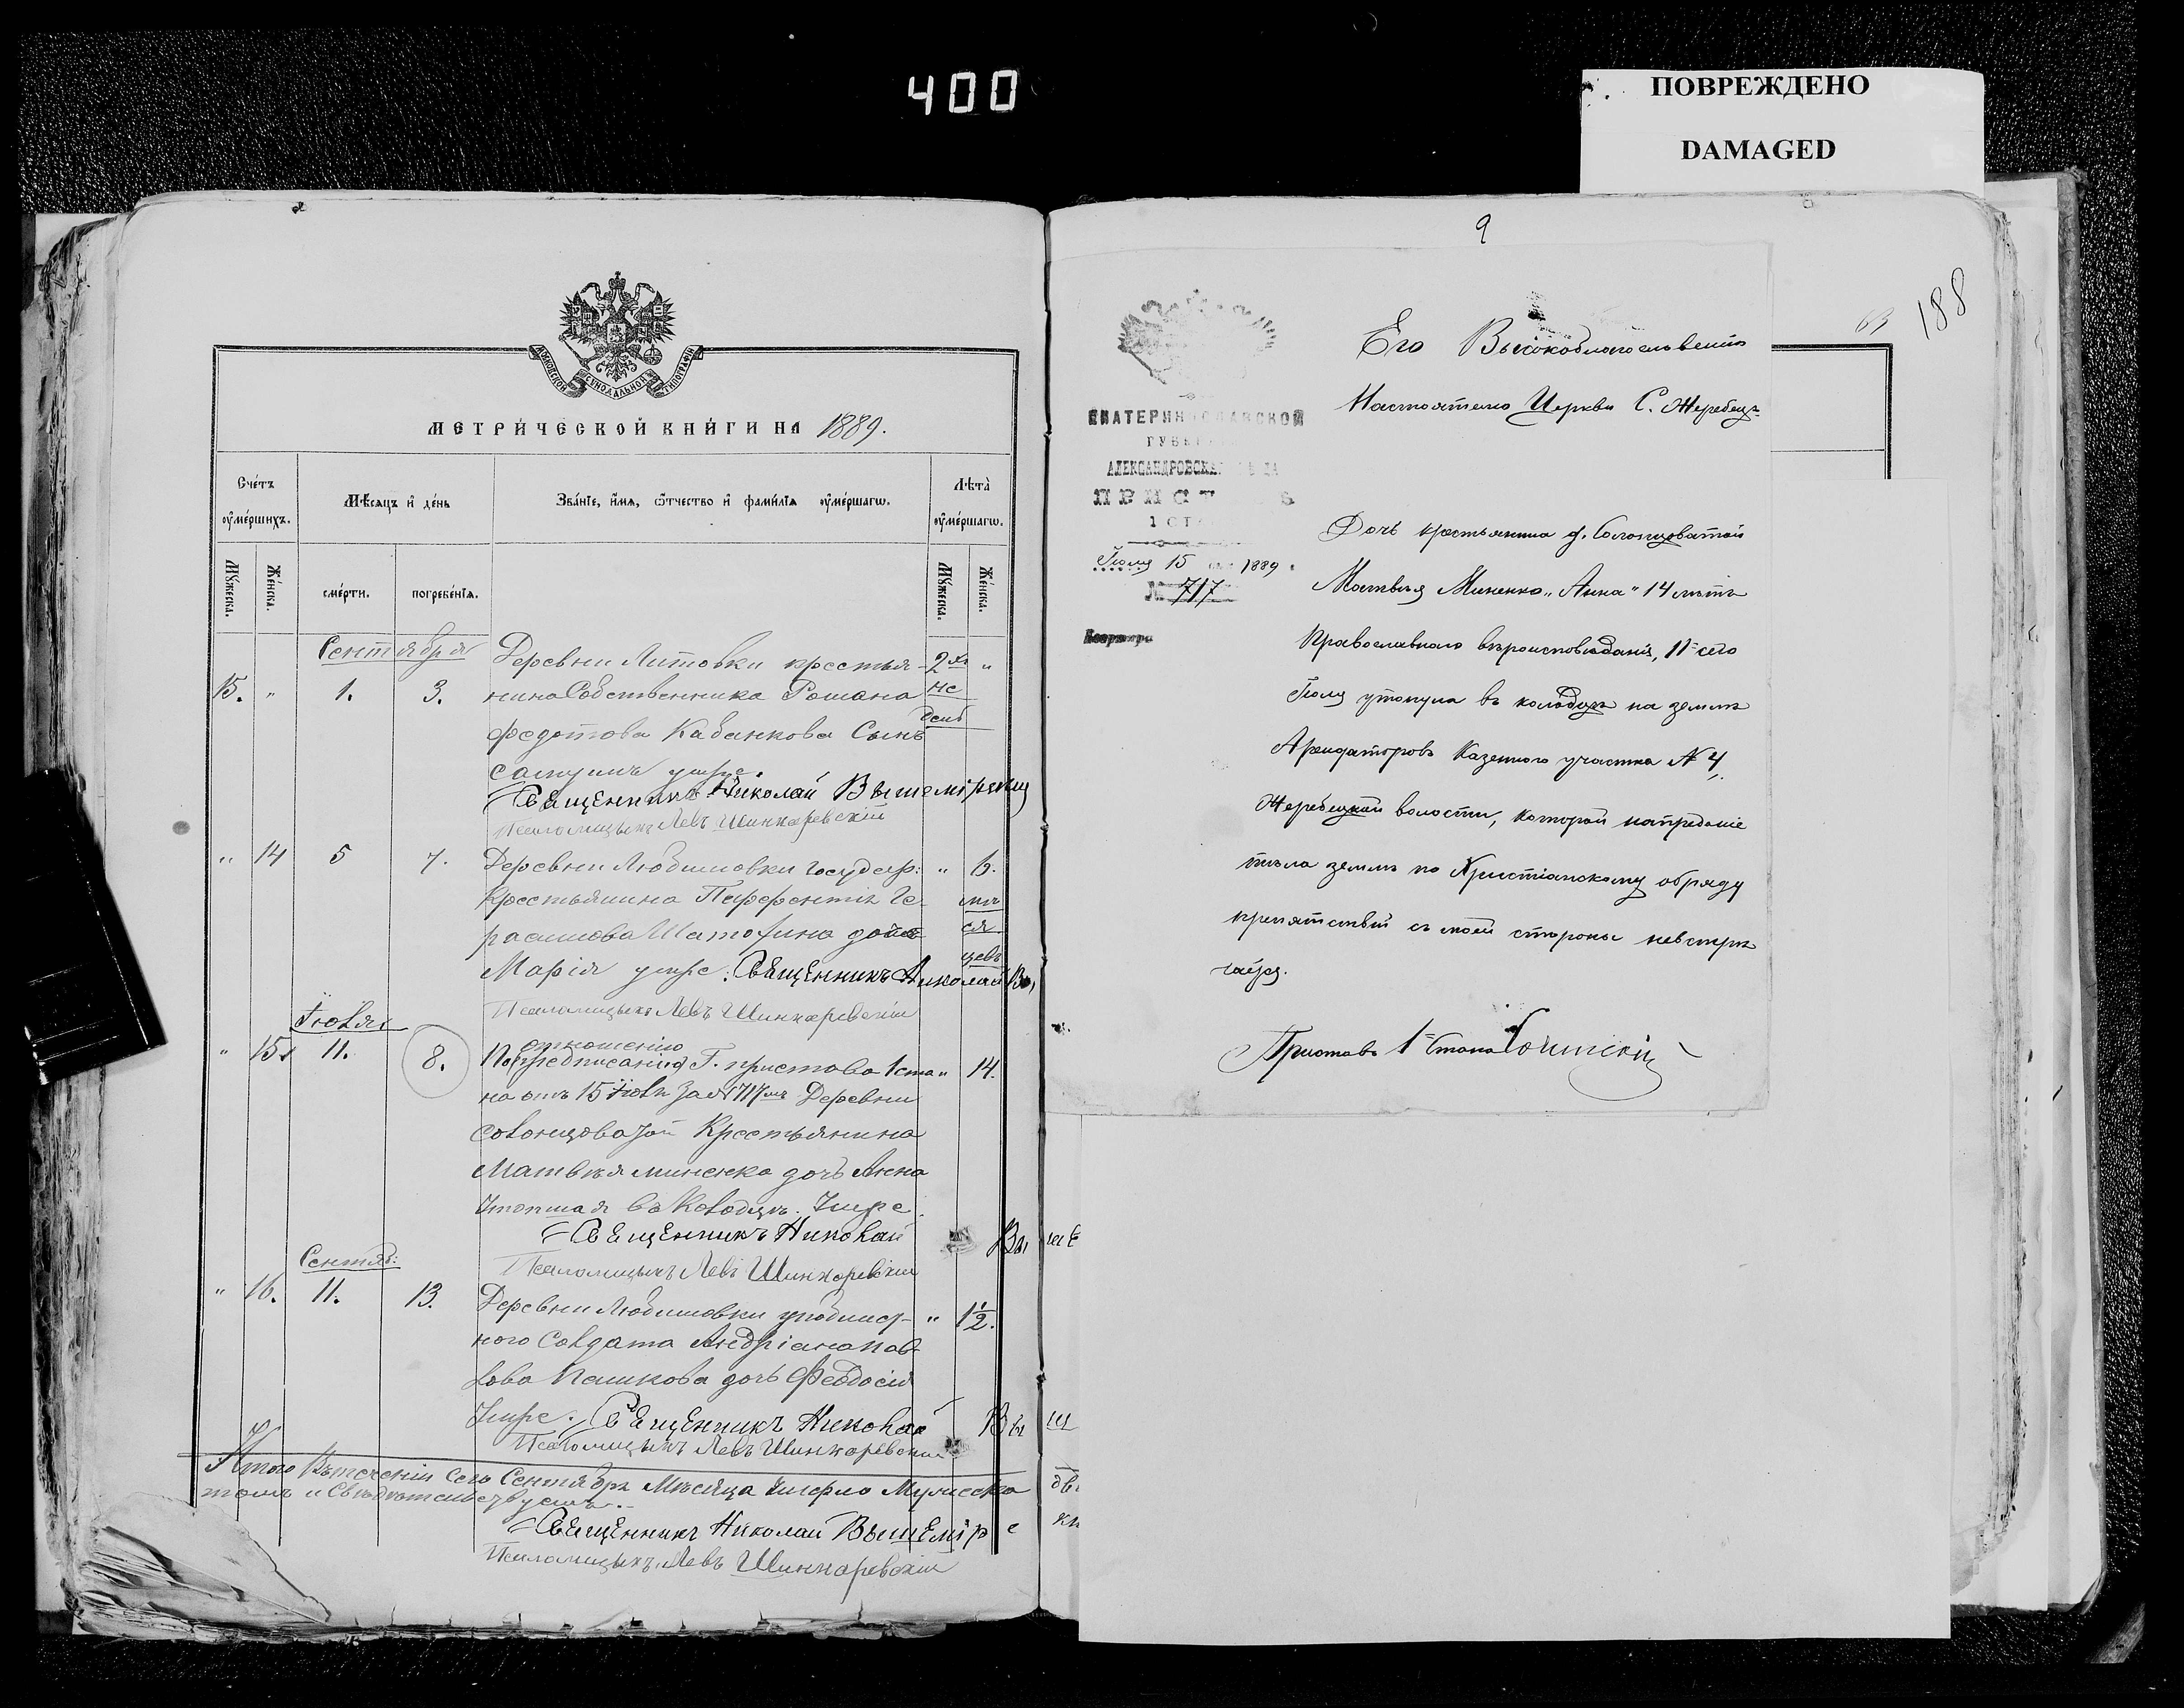 400
ПОВРЕЖДЕНО
DAMAGED
МОСКОВСКОЙ СѴНОДАЛЬНОЙ ТИПОГРАФІИ
МЕТРИЧЕСКОЙ КНИГИ НА 1889.
Счетъ
умершихъ.
Мѣсяцъ и день
Званіе, имя, отчество и фамилія умершаго.
Лѣта
умершаго.
Мужеска.
Женска.
смерти.
погребенія.
Мужеска.
Женска.
Сентября
15. „ 1. 3. Деревни Литовки крестья- 2 хъ „
нина Собственника Романа не
Федотова Кабанкова Сынъ
умре.
Священникъ Николай
Псаломщикъ Левъ Шинкаревскій
„ 14 5 7. Деревни Любимовки государ: „ 6.
Крестьянина Парфентія Ге- мѣ
расимова дочь ся
Марія умре. Священникъ Николай Вы цевъ
Псаломщикъ Левъ Шинкаревскій
Іюля
отношенію
„ 15 11. 8. По предписанію Г. пристава 1 ста „ 14.
на отъ 15 Іюля за № 717 мъ Деревни
Солонцоватой Крестьянина
Матвѣя Миненко дочь Анна
Утопшая въ Колодцѣ. Умре.
Священникъ Николай Вы ше
Псаломщикъ Левъ Шинкаревскій
Сентяб:
„ 16. 11. 13. Деревни Любимовки „ 1 1/2.
ного Солдата Андріана Пав-
лова Пашкова дочь Феодосія
Умре. Священникъ Николай Вы ш
Псаломщикъ Левъ Шинкаревскій
Итого Въ теченіи Сего Сентября Мѣсяца умерло Мужеска дв
томъ и Свидѣтельствуемъ.
Священникъ Николай Вышемір
Псаломщикъ Левъ Шинкаревскій
9
188
63
ЕКАТЕРИНОСЛАВСКОЙ
ГУБЕР
АЛЕКСАНДРОВСКА
ПРИСТ
1 СТ
Іюля 15 1889
№ 717
Его Высокоблагословенію
Настоятелю Церкви С. Жеребецъ
Дочь крестьянина д. Солонцоватой
Матвѣя Миненко „Анна" 14 лѣтъ
Православнаго вѣроисповѣданія, 11 сего
Іюля утонула въ колодцѣ на землѣ
Арендаторовъ Казенного участка № 4,
Жеребецкой волости, которой на преданіе
тѣла землѣ по Христіанскому обряду
препятствій съ моей стороны не встрѣ
чается.
Приставъ 1 Стана